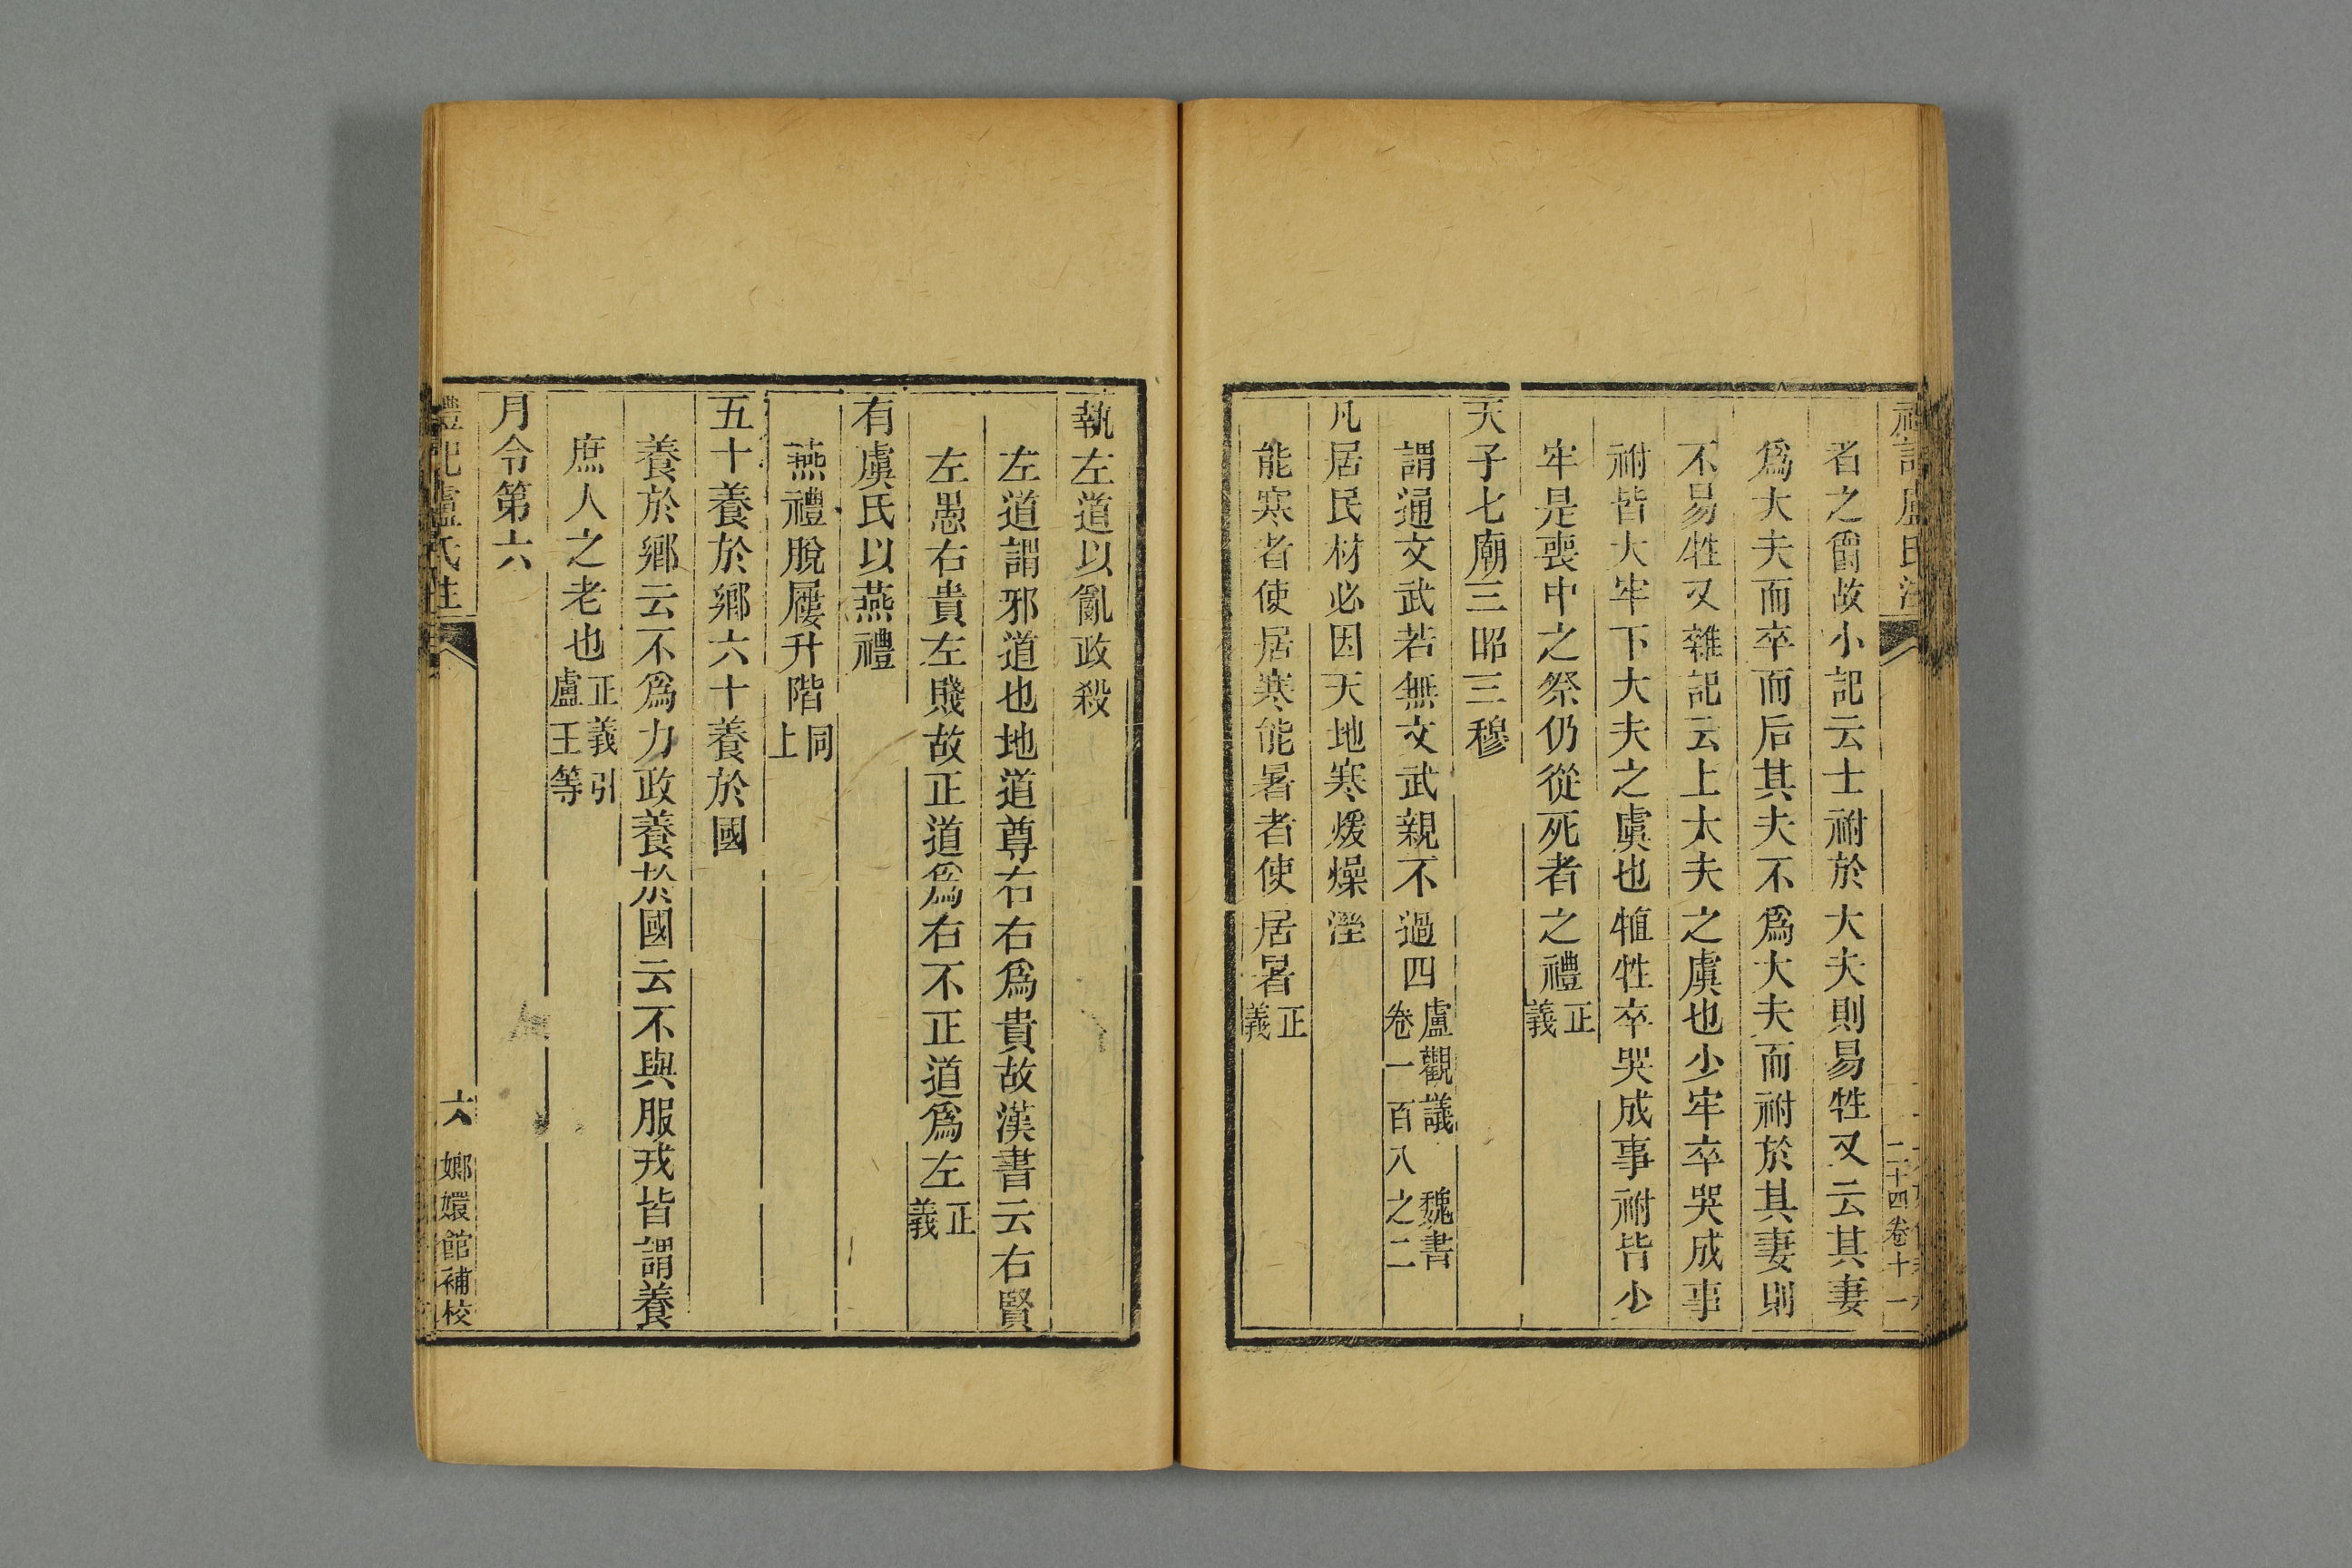 者之爵故小記云士祔於大夫則易牲又云其妻
爲大夫而卒而后其夫不爲大夫而祔於其妻則
不易牲又雜記云上大夫之虞也少牢卒哭成事
祔皆大牢下大夫之虞也犆牲卒哭成事祔皆少
牢是喪中之祭仍從死者之禮正義
天子七廟三昭三穆
謂通文武若無文武親不過四盧觀議 魏書卷一百八之二
凡居民材必因天地寒煖燥溼
能寒者使居寒能暑者使居暑正義
執左道以亂政殺
左道謂邪道也地道尊右右爲貴故漢書云右賢
左愚右貴左賤故正道爲右不正道爲左正義
有虞氏以燕禮
燕禮脫屨升階同上
五十養於鄉六十養於國
養於鄉云不爲力政養於國云不與服戎皆謂養
庶人之老也正義引盧王等
月令第六
禮記盧氏注 六 嫏嬛館補校